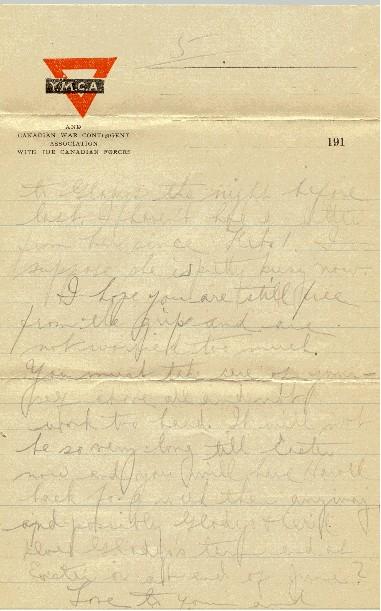 5
Y.M.C.A.
AND
CANADIAN WAR CONTINGENT
ASSOCIATION
WITH THE CANADIAN FORCES
191
to Gladys the night before
last. I haven't had a letter
from her since Feb 1. I
suppose she is pretty busy now.
I hope you are still free
from the grippe and are
not worried too much.
You must take care of your-
self above all and not
work too hard. It will not
be so very long till Easter
now and you will have
back for a week then anyway
and possibly Gladys &
Does Gladys's term end at
Easter or at end of June?
Love to you and